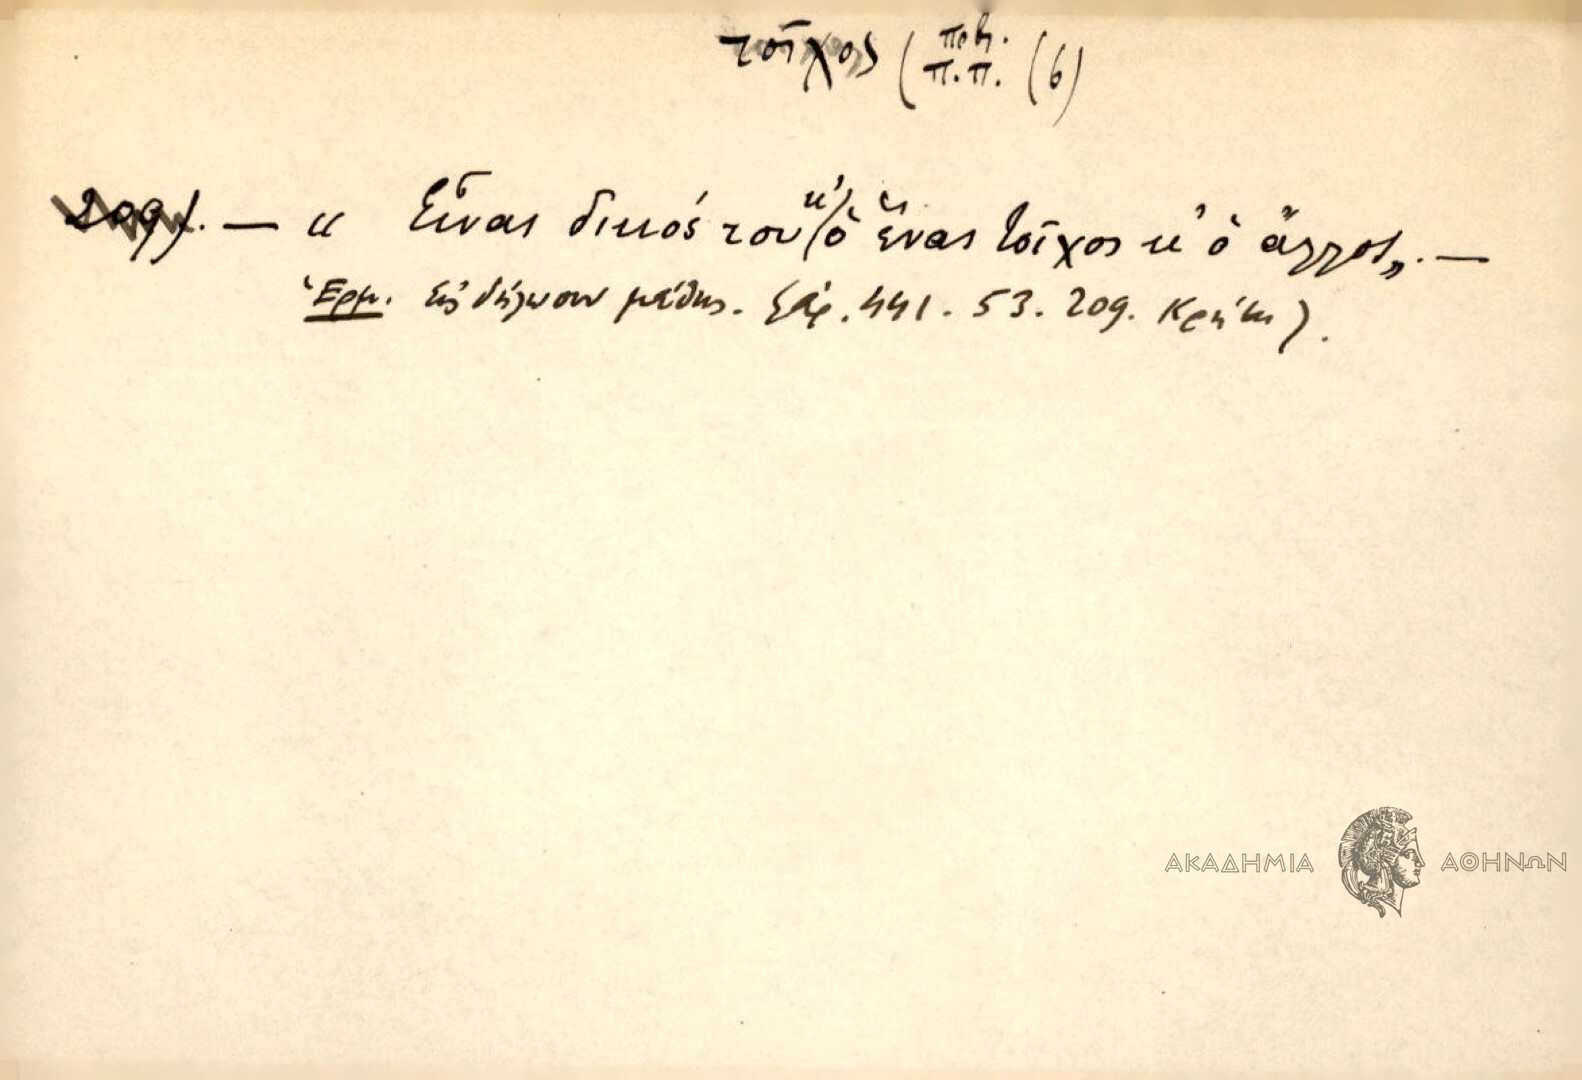 τοῖχος ( πρβ.
π.π. (6)
209). — « Εἶναι δικός του κ' ὁ ἕνας τοῖχος κ' ὁ ἄλλος». —
Ἑρμ. Εἰς δήλωσιν μέθης. ἀρ. 441. 53. 209. Κρήτη).
ΑΚΑΔΗΜΙΑ ΑΘΗΝΩΝ